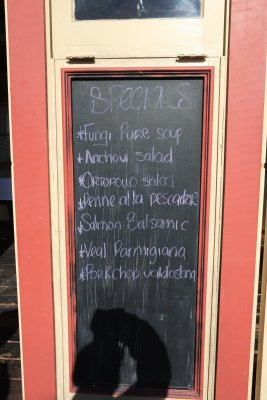 SPECIALS
*Fungi Pure soup
*Anchovi salad
*ORTOPOLLO salad
*Penne alla pescador
*Salmon Balsamic
*Veal Parmigiana
*PORKchop valdostana